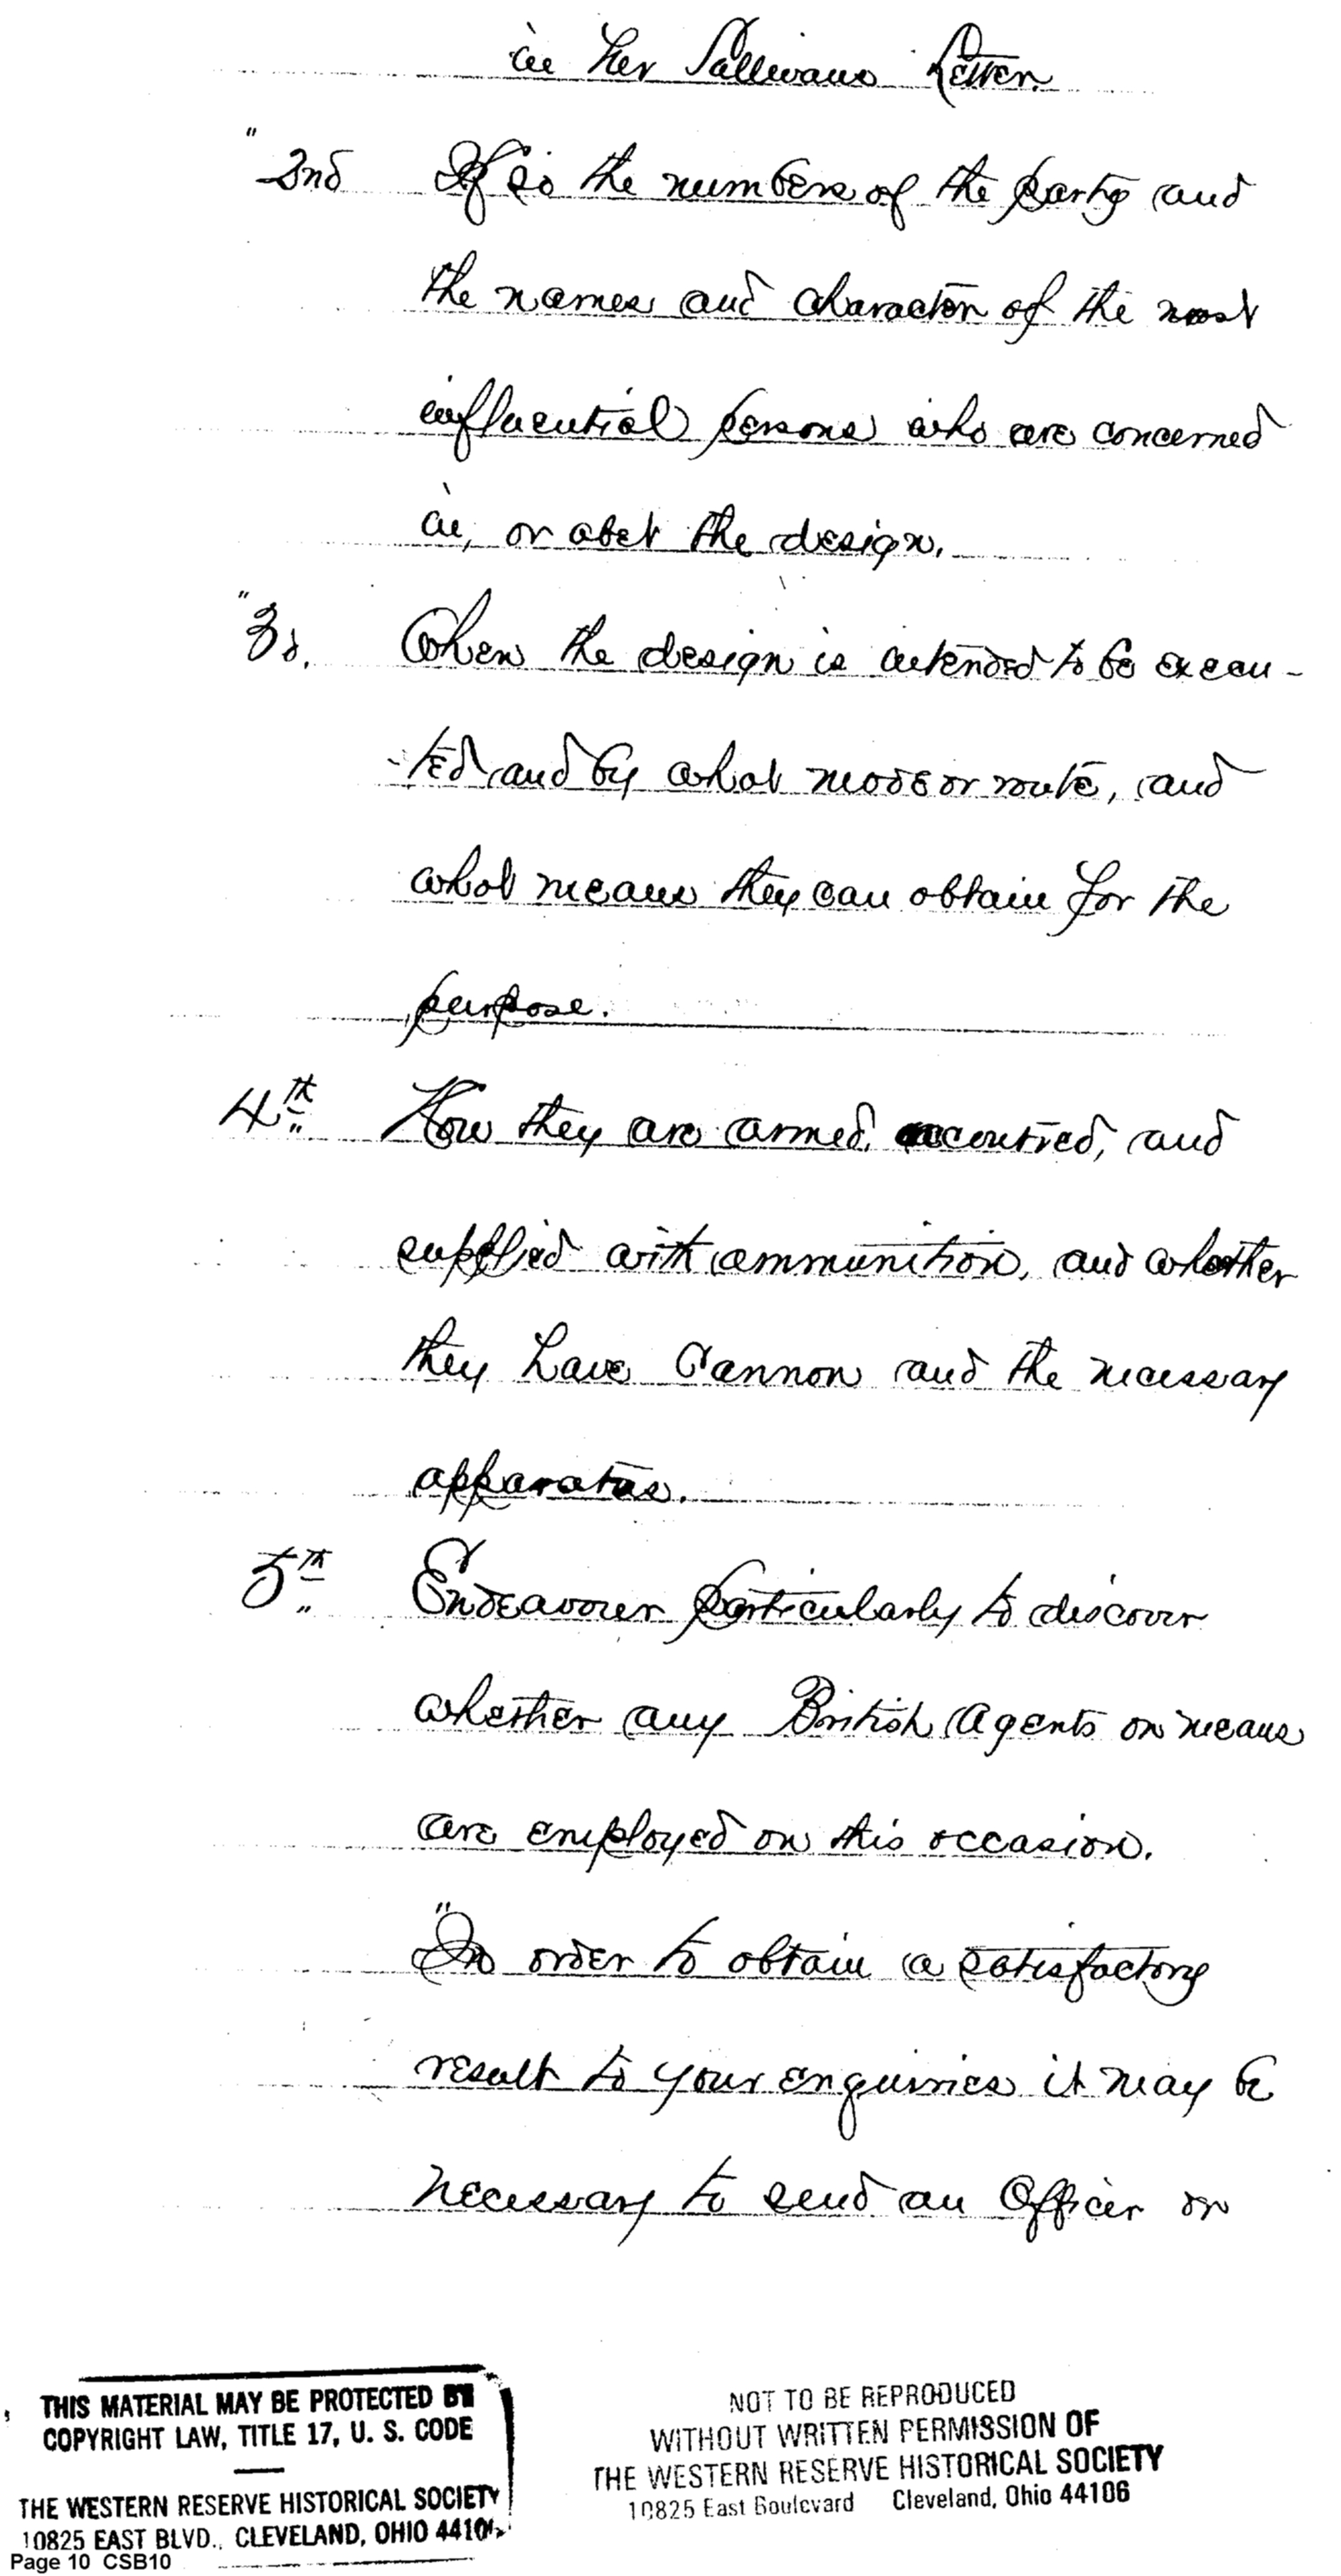 in her Sullivans Letter.
" 2nd If so the numbers of the party and
the names and character of the most
influential persons who are concerned
in, or abet the design.
" 3d. When the design is intended to be execu-
-ted and by what mode or route, and
what means they can obtain for the
purpose.
4th " How they are armed, accoutred, and
supplied with ammunition, and whether
they have Cannon and the necessary
apparatus.
5th " Endeavour particularly to discover
whether any British Agents or means
are employed on this occasion.
"In order to obtain a satisfactory
result to your enquiries it may be
necessary to send an Officer or
THIS MATERIAL MAY BE PROTECTED BY
COPYRIGHT LAW, TITLE 17, U. S. CODE
THE WESTERN RESERVE HISTORICAL SOCIETY
10825 EAST BLVD., CLEVELAND, OHIO 44106
Page 10 CSB10
NOT TO BE REPRODUCED
WITHOUT WRITTEN PERMISSION OF
THE WESTERN RESERVE HISTORICAL SOCIETY
10825 East Boulevard Cleveland, Ohio 44106